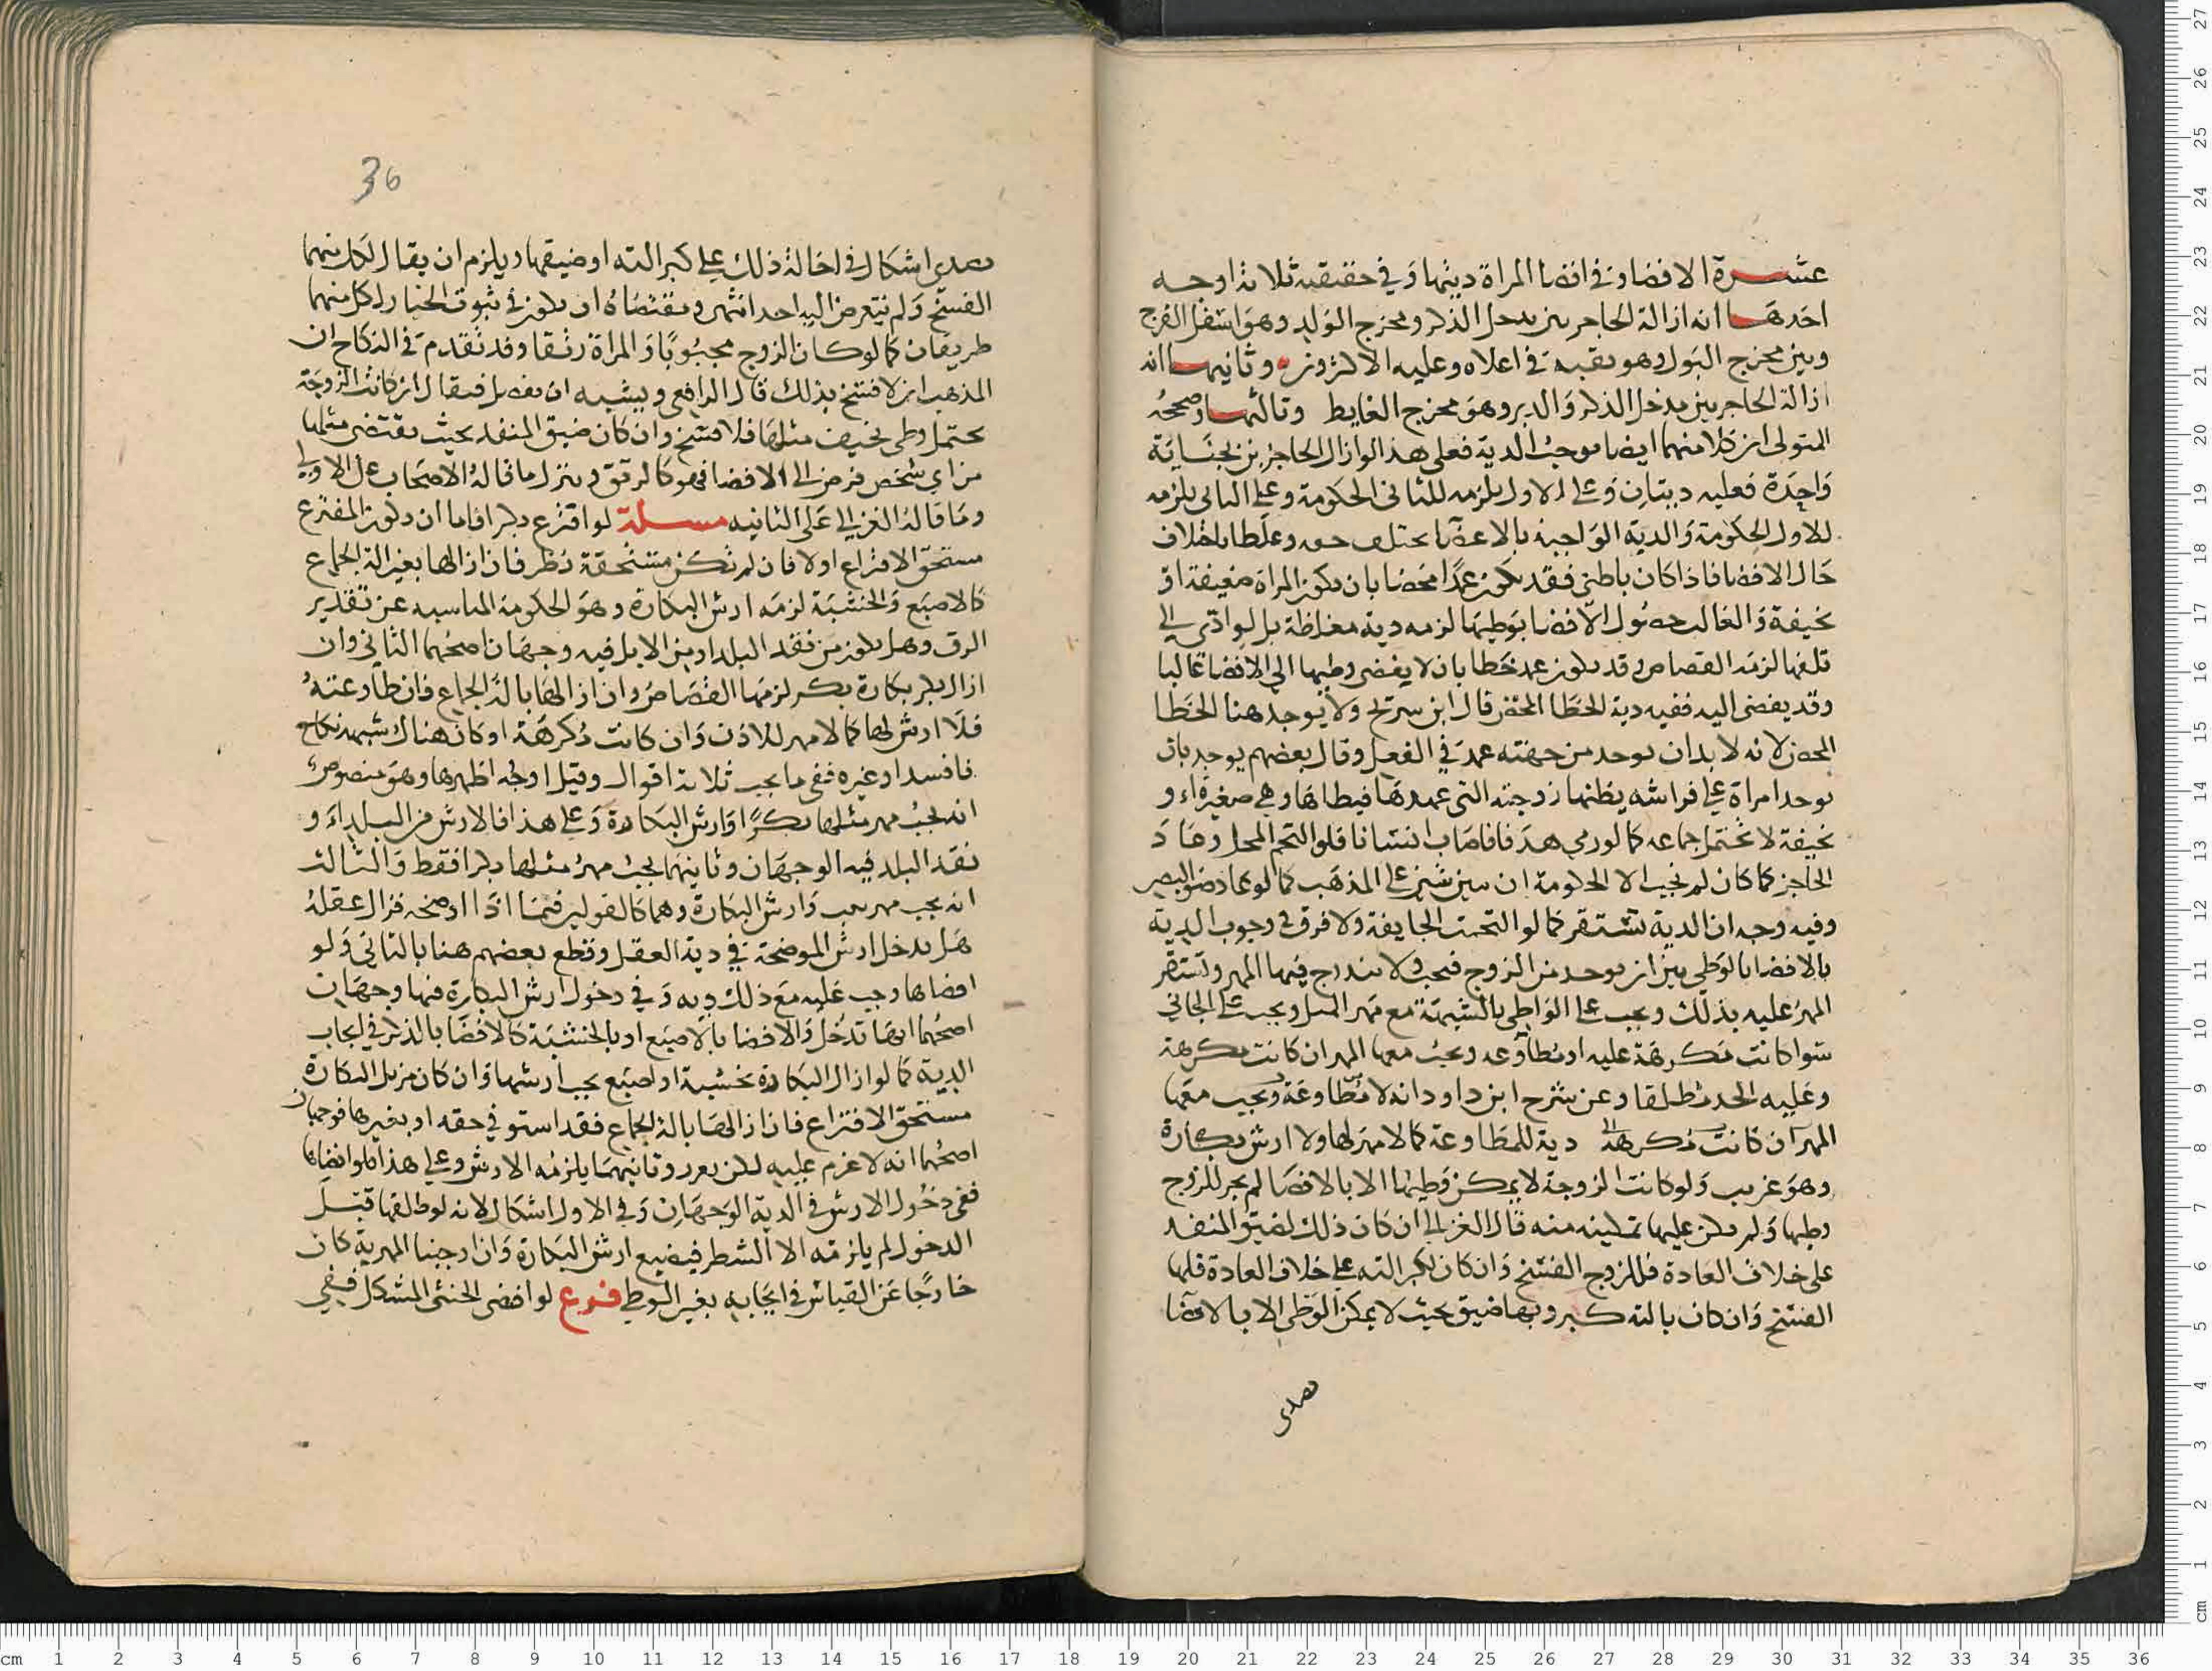 عشرة الافضا وفي افضا المراة ديتها وفي حقيقته ثلاثة اوجه
احدها انه ازالة الحاجز بين مدخل الذكر ومخرج الولد وهو اسفل الفرج
وبين مخرج البول وهو ثقبه في اعلاه وعليه الاكثرون وثانيها انه
ازالة الحاجز بين مدخل الذكر والدبر وهو مخرج الغايط وثالثها وصححه
المتولي ان كلا منهما ايضا موجب الدية فعلى هذا لو ازال الحاجزين بجناية
واحدة فعليه ديتان وعلى الاول يلزمه للثاني الحكومة وعلى الثاني يلزمه
للاول الحكومة والدية الواجبة بالافضا تختلف خفه وغلظا باختلاف
حال الافضا فاذا كان بالوطي فقد يكون عمدا محضا بان تكون المراة ضعيفة او
نحيفة والغالب حصول الافضا بوطيها لزمه دية مغلظة بل لو ادى الى
تلفها لزمه القصاص وقد يكون عمد خطا بان لا يفضي وطيها الى الافضا غالبا
وقد يفضي اليه ففيه دية الخطا المحض قال ابن سريج ولا يوجد هنا الخطا
المحض لانه لا بد ان يوجد من جهته عمد في الفعل وقال بعضهم يوجد بان
يوجد امراة على فراشه يظنها زوجته التي عهدها فيطاها وهي صغيرة او
نحيفة لا تحتمل جماعه كما لو رمى هدفا فاصاب انسانا فلو التحم المحل وعاد
الحاجز كما كان لم يجب الا الحكومة ان بقي شين على المذهب كما لو عاد ضو البصر
وفيه وجه ان الدية تستقر كما لو التحمت الجايفة ولا فرق في وجوب الدية
بالافضا بالوطي بين ان يوجد من الزوج فتجب ولا يندرج فيها المهر وتستقر
المهر عليه بذلك ويجب على الواطي بالشبهة مع مهر المثل ويجب على الجاني
سوا كانت مكرهة عليه او مطاوعه ويجب معها المهر ان كانت مكرهة
وعليه الحد مطلقا وعن شرح ابن داود انه لا مطاوعة ويجب معها
المهر ان كانت مكرهة دية للمطاوعة كما لا مهر لها ولا ارش بكارة
وهو غريب ولو كانت الزوجة لا يمكن وطيها الا بالافضا لم يجز للزوج
وطيها ولم يكن عليها تمكينه منه قال الغزالي ان كان ذلك لضيق المنفذ
على خلاف العادة فللزوج الفسخ وان كان لكبر الته على خلاف العادة فلها
الفسخ وان كان بالته كبر وبها ضيق بحيث لا يمكن الوطي الا بالافضا
36
اشكال في احالة ذلك على كبر الته او ضيقها ويلزم ان يقال لكل منهما
الفسخ ولم يتعرض اليه احد انتهى ومقتضاه ان يكون في ثبوت الخيار لكل منهما
طريقان كما لو كان الزوج مجبوبا والمراة رتقا وقد تقدم في النكاح ان
المذهب ان لا فسخ بذلك قال الرافعي ويشبه ان يفصل فيقال ان كانت الزوجة
تحتمل وطي نحيف مثلها فلا فسخ وان كان ضيق المنفذ بحيث يقتضي مثلها
من اي شخص فرض الى الافضا فهو كالرتق وينزل ما قاله الاصحاب على الاولى
وما قاله الغزالي على الثانيه مسلة لو افترع بكرا فاما ان يكون المفترع
مستحق الافتراع اولا فان لم تكن مستحقة نظر فان ازالها بغير الة الجماع
كالاصبع والخشبة لزمه ارش البكارة وهو الحكومة المناسبه عن تقدير
الرق وهل يكون من نقد البلد او من الابل فيه وجهان اصحهما الثاني وان
ازال بكر بكارة بكر لزمها القصاص وان ازالها بالة الجماع فان طاوعته
فلا ارش لها كما لا مهر للاذن وان كانت مكرهة او كان هناك شبهة نكاح
فاسد او غيره ففي ما يجب ثلاثة اقوال وقيل اوجه اظهرها وهو منصوص
انه يجب مهر مثلها بكرا وارش البكارة وعلى هذا فالارش من البلد او
نقد البلد فيه الوجهان وثانيها يجب مهر مثلها بكرا فقط والثالث
انه يجب مهر ثيب وارش البكارة وهما كالقولين فيما اذا اوضحه فزال عقله
هل يدخل ارش الموضحة في دية العقل وقطع بعضهم هنا بالثاني ولو
افضاها وجب عليه مع ذلك دية وفي دخول ارش البكارة فيها وجهان
اصحهما انها تدخل والافضا بالاصبع او بالخشبة كالافضا بالذكر في ايجاب
الدية كما لو ازال البكارة بخشبة او اصبع يجب ارشها وان كان مزيل البكارة
مستحق الافتراع فان ازالها بالة الجماع فقد استوفى حقه او بغيرها فوجهان
اصحهما انه لا غرم عليه لكن يعزر وثانيهما يلزمه الارش وعلى هذا فلو افضاها
ففي دخول الارش في الدية الوجهان وفي الاول اشكال لانه لو طلقها قبل
الدخول لم يلزمه الا الشطر فيضيع ارش البكارة وان اوجبنا المهر به كان
خارجا عن القياس في ايجابه بغير الوطي فرع لو افضى الخنثى المشكل ففي